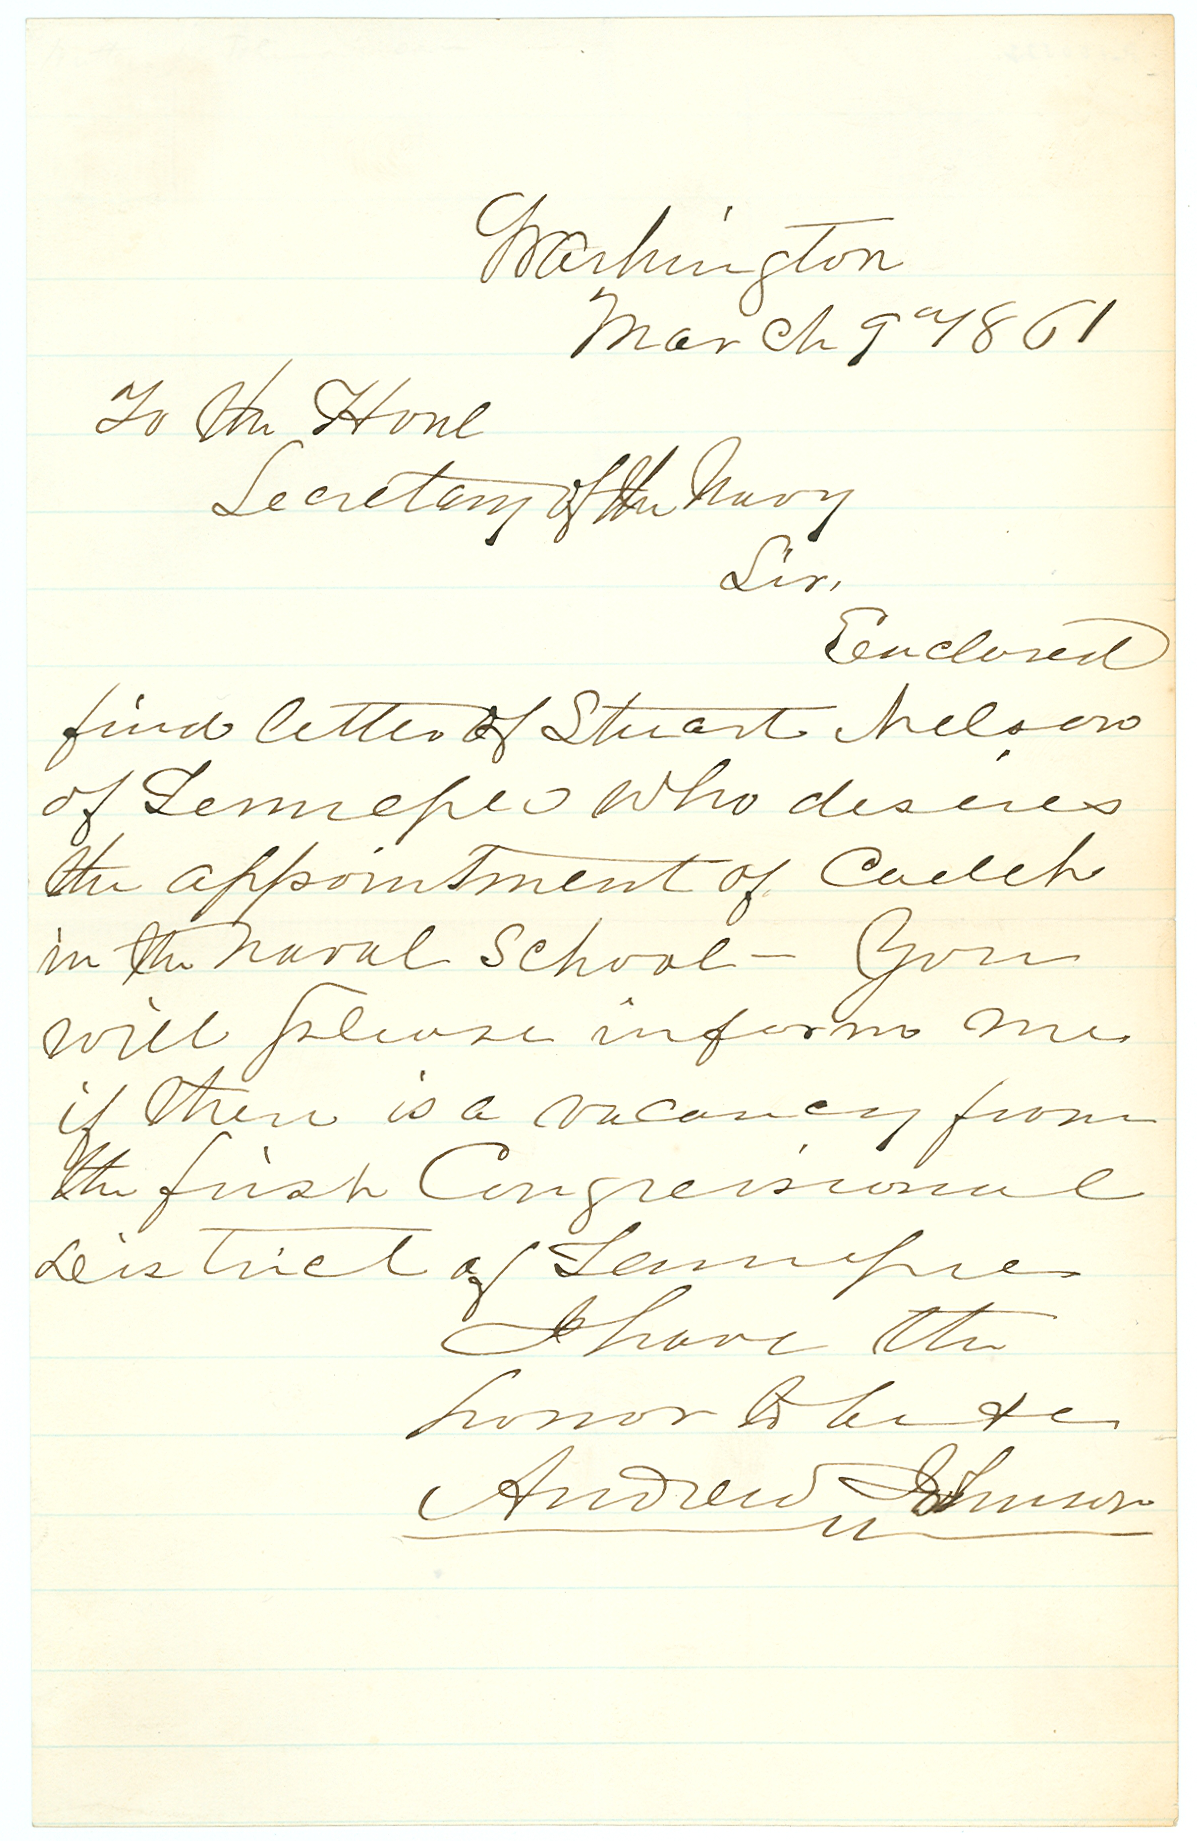 Washington
March 9th 1861
To the Honl
Secretary of the Navy
Sir,
Enclosed
find letter of Stuart Nelson
of Tennessee who desires
the appointment of Cadeth
in the Naval School - You
will please inform me
if there is a vacancy from
the first Congressional
District of Tennessee
I have the
honor to be &c
Andrew Johnson